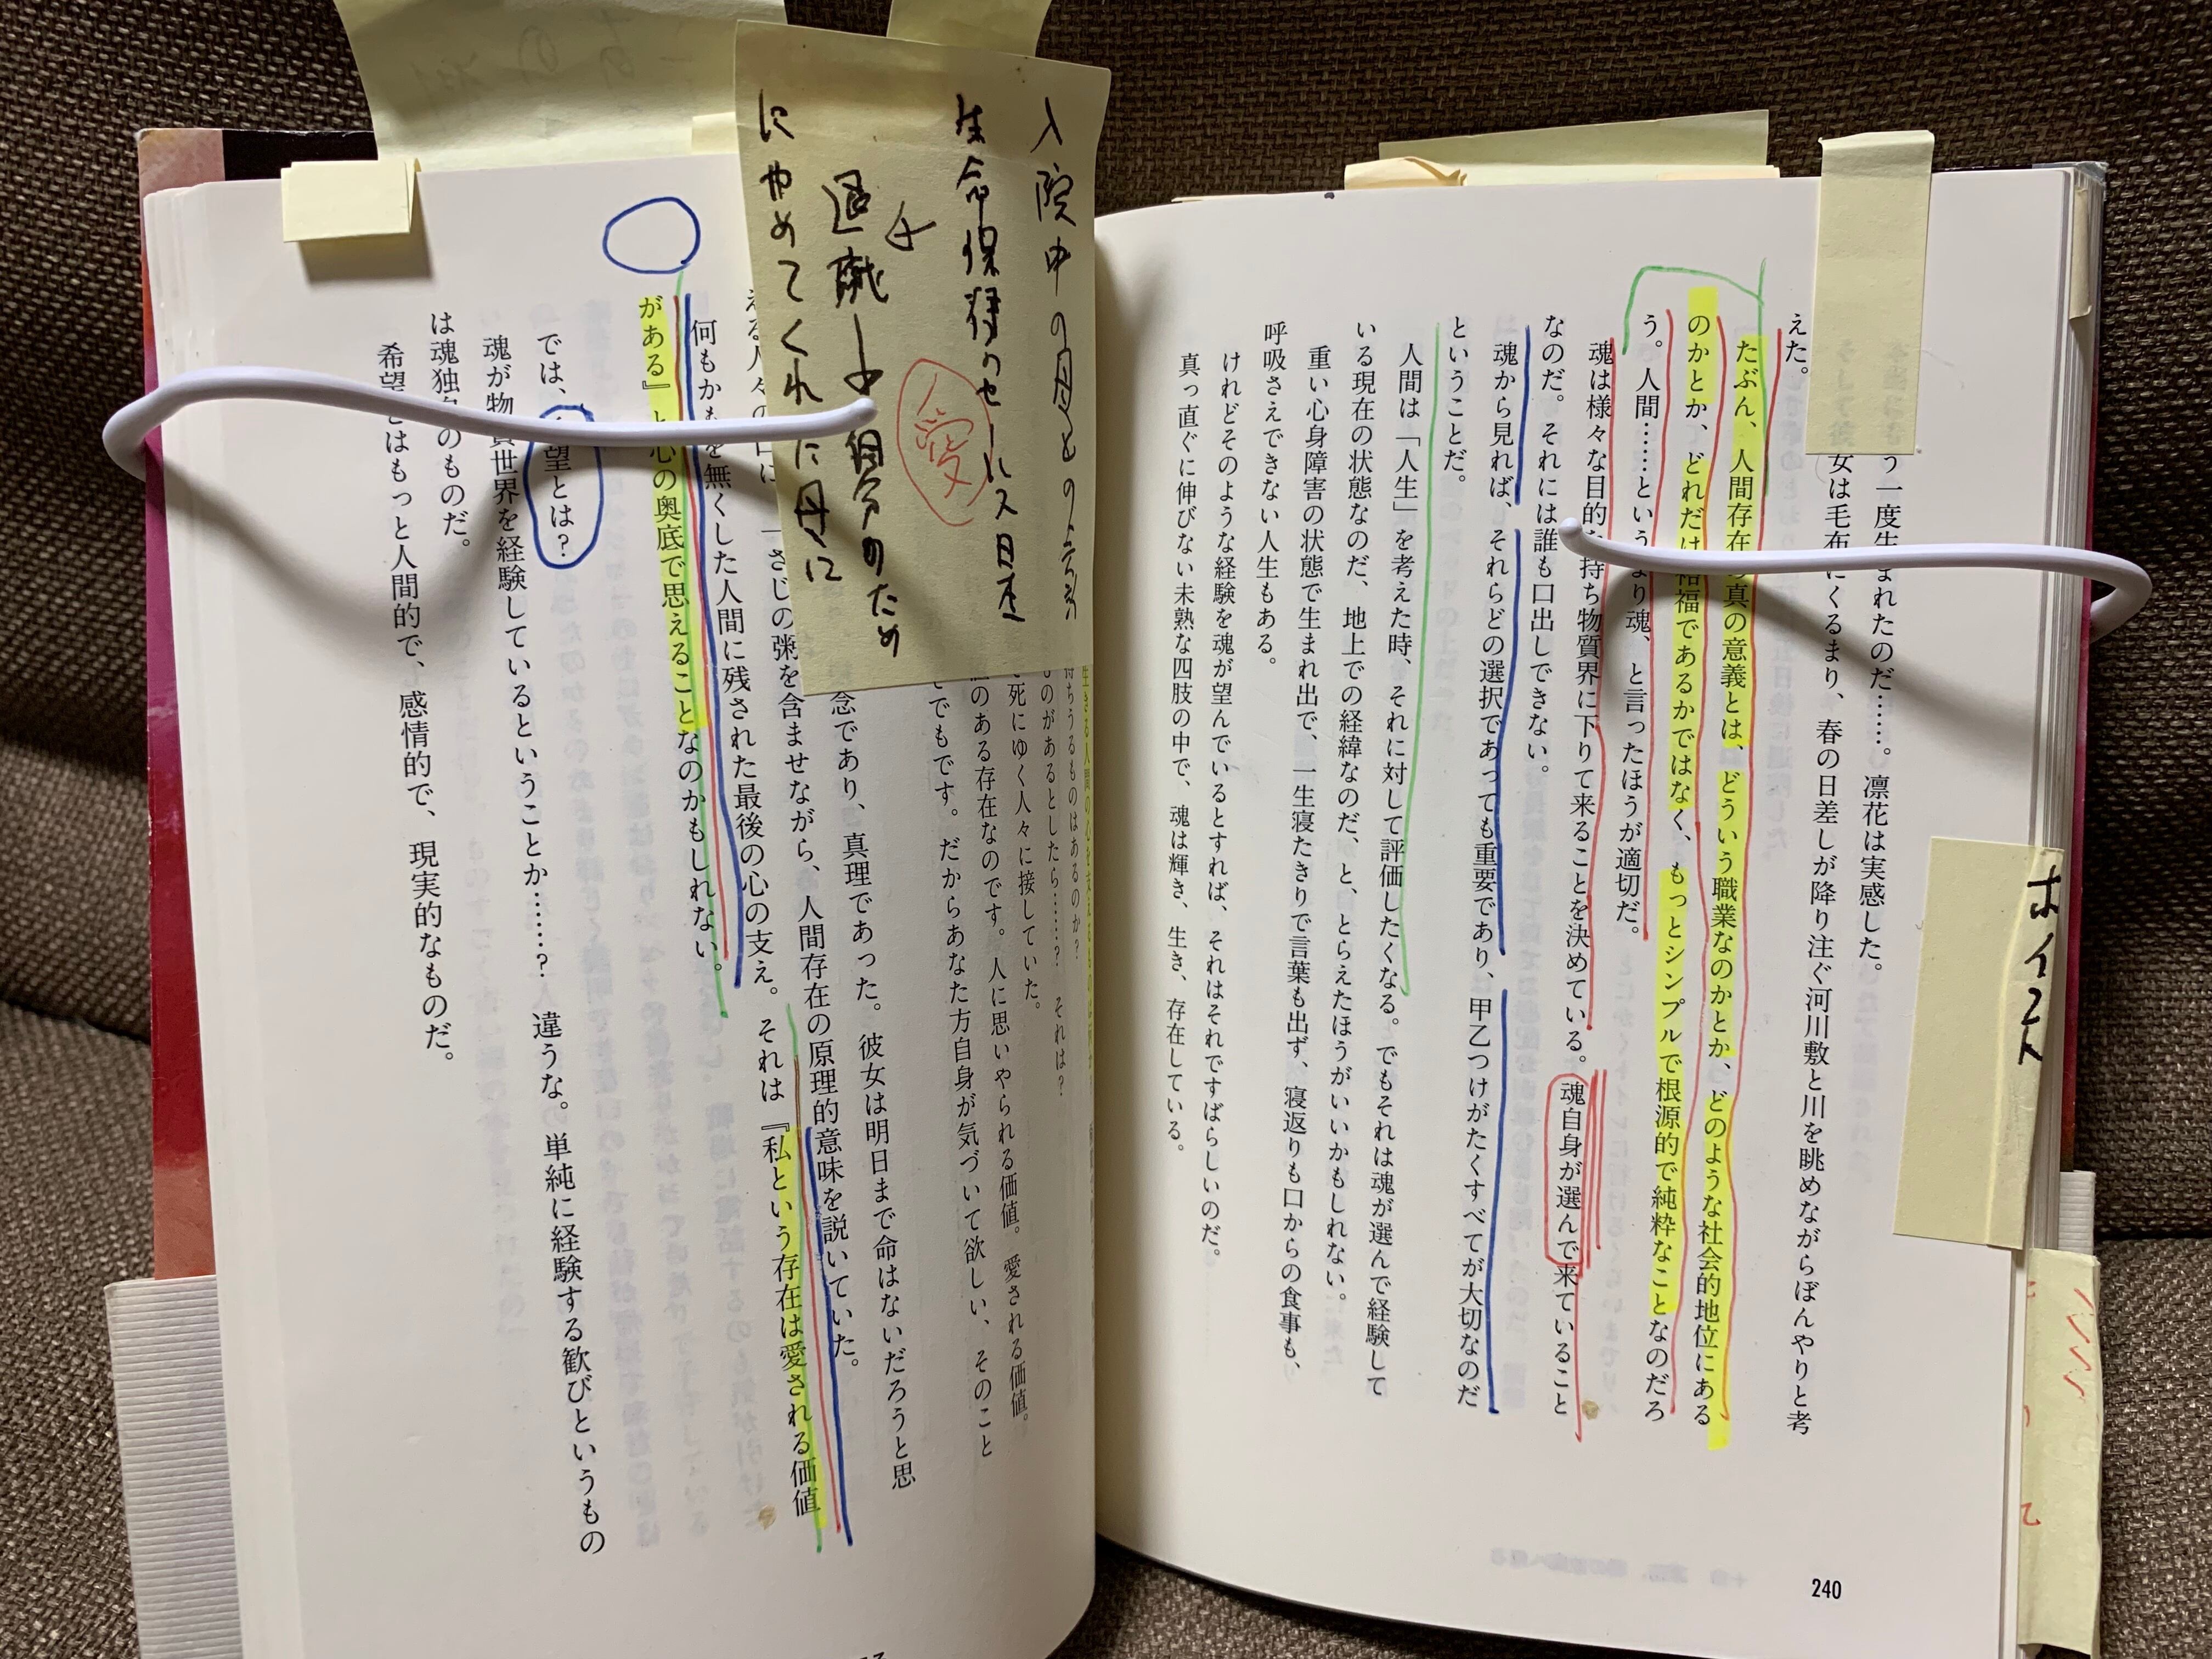 う一度生まれたのだ……。凛花は実感した。
女は毛布にくるまり、春の日差しが降り注ぐ河川敷と川を眺めながらぼんやりと考
えた。
たぶん、人間存在の真の意義とは、どういう職業なのかとか、どのような社会的地位にある
のかとか、どれだけ裕福であるかではなく、もっとシンプルで根源的で純粋なことなのだろ
う。人間……というより魂、と言ったほうが適切だ。
魂は様々な目的を持ち物質界に下りて来ることを決めている。魂自身が選んで来ていること
なのだ。それには誰も口出しできない。
魂から見れば、それらどの選択であっても重要であり、甲乙つけがたくすべてが大切なのだ
ということだ。
人間は「人生」を考えた時、それに対して評価したくなる。でもそれは魂が選んで経験して
いる現在の状態なのだ、地上での経緯なのだ、と、とらえたほうがいいかもしれない。
重い心身障害の状態で生まれ出で、一生寝たきりで言葉も出ず、寝返りも口からの食事も、
呼吸さえできない人生もある。
けれどそのような経験を魂が望んでいるとすれば、それはそれですばらしいのだ。
真っ直ぐに伸びない未熟な四肢の中で、魂は輝き、生き、存在している。
240
ホイスト
入院中の母との
生命保持のせ
愛
退職
自分のため
にやめてくれた母に
生きる人間の心を支え
持ちうるものはあるのか?
ものがあるとしたら……? それは?
死にゆく人々に接していた。
のある存在なのです。人に思いやられる価値。愛される価値。
でもです。だからあなた方自身が気づいて欲しい、そのこと
念であり、真理であった。彼女は明日まで命はないだろうと思
える人々の口に一さじの粥を含ませながら、人間存在の原理的意味を説いていた。
何もかもを無くした人間に残された最後の心の支え。それは『私という存在は愛される価値
がある』と心の奥底で思えることなのかもしれない。
では、望とは?
魂が物質世界を経験しているということか……? 違うな。単純に経験する歓びというもの
は魂独自のものだ。
希望とはもっと人間的で、感情的で、現実的なものだ。